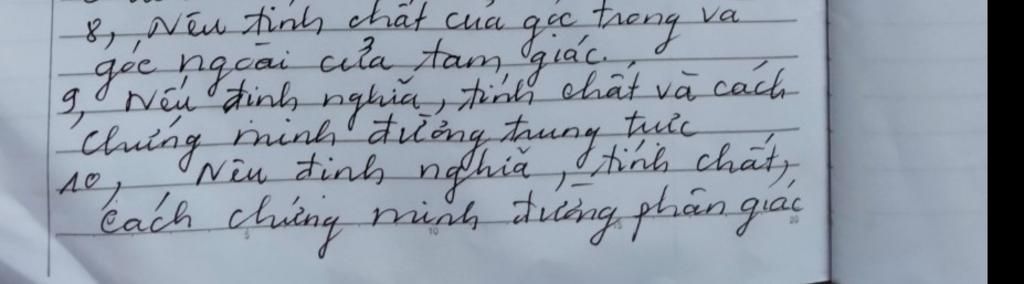 8, Nêu tính chất của góc trong và
góc ngoài của tam giác.
9, Nêu định nghĩa, tính chất và cách
chứng minh đường trung trực
10, Nêu định nghĩa, tính chất,
cách chứng minh đường phân giác